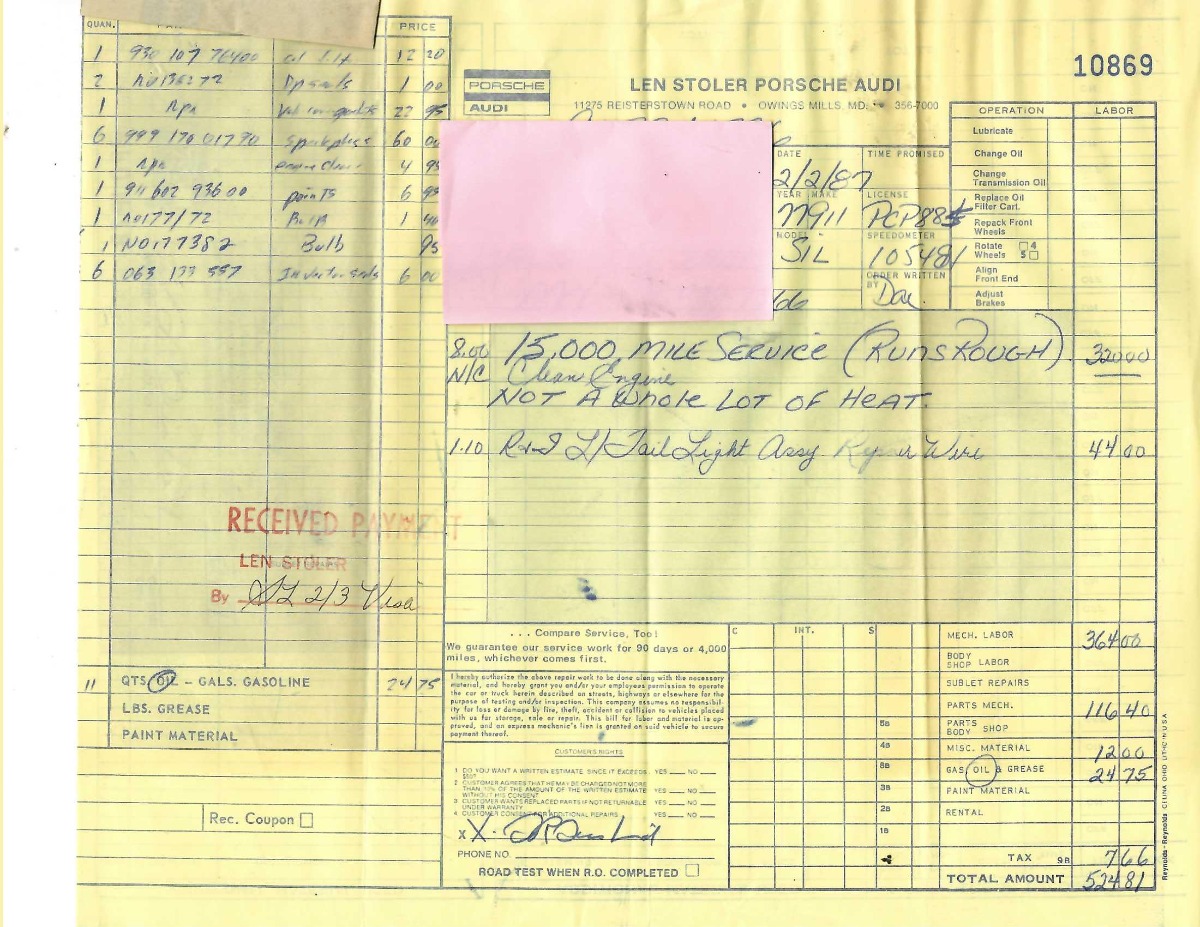 QUAN.
PRICE
1 930 107 76400 12 20
2 1 00
1 22 95
6 999 170 01790 60 00
1 4 95
1 911 602 93600 points 6 95
1 N0177172 Bulb 1
1 N0177382 Bulb 95
6 063 133 557 6 00
RECEIVED PAYMENT
LEN STOLER
By SL 2/3 Visa
11 QTS. OIL - GALS. GASOLINE 24 75
LBS. GREASE
PAINT MATERIAL
Rec. Coupon
10869
PORSCHE
AUDI
LEN STOLER PORSCHE AUDI
11275 REISTERSTOWN ROAD • OWINGS MILLS, MD. • 356-7000
DATE
2/2/87
TIME PROMISED
YEAR MAKE
77 911
LICENSE
PCP 88
MODEL
SIL
SPEEDOMETER
105481
ORDER WRITTEN
BY
OPERATION LABOR
Lubricate
Change Oil
Change
Transmission Oil
Replace Oil
Filter Cart.
Repack Front
Wheels
Rotate 4
Wheels 5
Align
Front End
Adjust
Brakes
8.00 15,000 MILE SERVICE (RUNS ROUGH) 320 00
N/C Clean Engine
NOT A WHOLE LOT OF HEAT.
1.10 R+I L/Tail Light Assy Repair Wire 44 00
... Compare Service, Too!
We guarantee our service work for 90 days or 4,000
miles, whichever comes first.
I hereby authorize the above repair work to be done along with the necessary
material, and hereby grant you and/or your employees permission to operate
the car or truck herein described on streets, highways or elsewhere for the
purpose of testing and/or inspection. This company assumes no responsibil-
ity for loss or damage by fire, theft, accident or collision to vehicles placed
with us for storage, sale or repair. This bill for labor and material is ap-
proved, and an express mechanic's lien is granted on said vehicle to secure
payment thereof.
CUSTOMER'S RIGHTS
1 DO YOU WANT A WRITTEN ESTIMATE SINCE IT EXCEEDS YES NO
$50?
2 CUSTOMER AGREES THAT HE MAY BE CHARGED NOT MORE
THAN 10% OF THE AMOUNT OF THE WRITTEN ESTIMATE YES NO
WITHOUT HIS CONSENT
3 CUSTOMER WANTS REPLACED PARTS IF NOT RETURNABLE YES NO
UNDER WARRANTY
4 CUSTOMER CONSENT FOR ADDITIONAL REPAIRS YES NO
X X
PHONE NO.
ROAD TEST WHEN R.O. COMPLETED
C INT. S
5B
4B
8B
3B
2B
1B
MECH. LABOR 364 00
BODY
SHOP LABOR
SUBLET REPAIRS
PARTS MECH. 116 40
PARTS
BODY SHOP
MISC. MATERIAL 12 00
GAS, OIL & GREASE 24 75
PAINT MATERIAL
RENTAL
TAX 9B 7 66
TOTAL AMOUNT 524 81
Reynolds + Reynolds CELINA OHIO LITHO IN USA